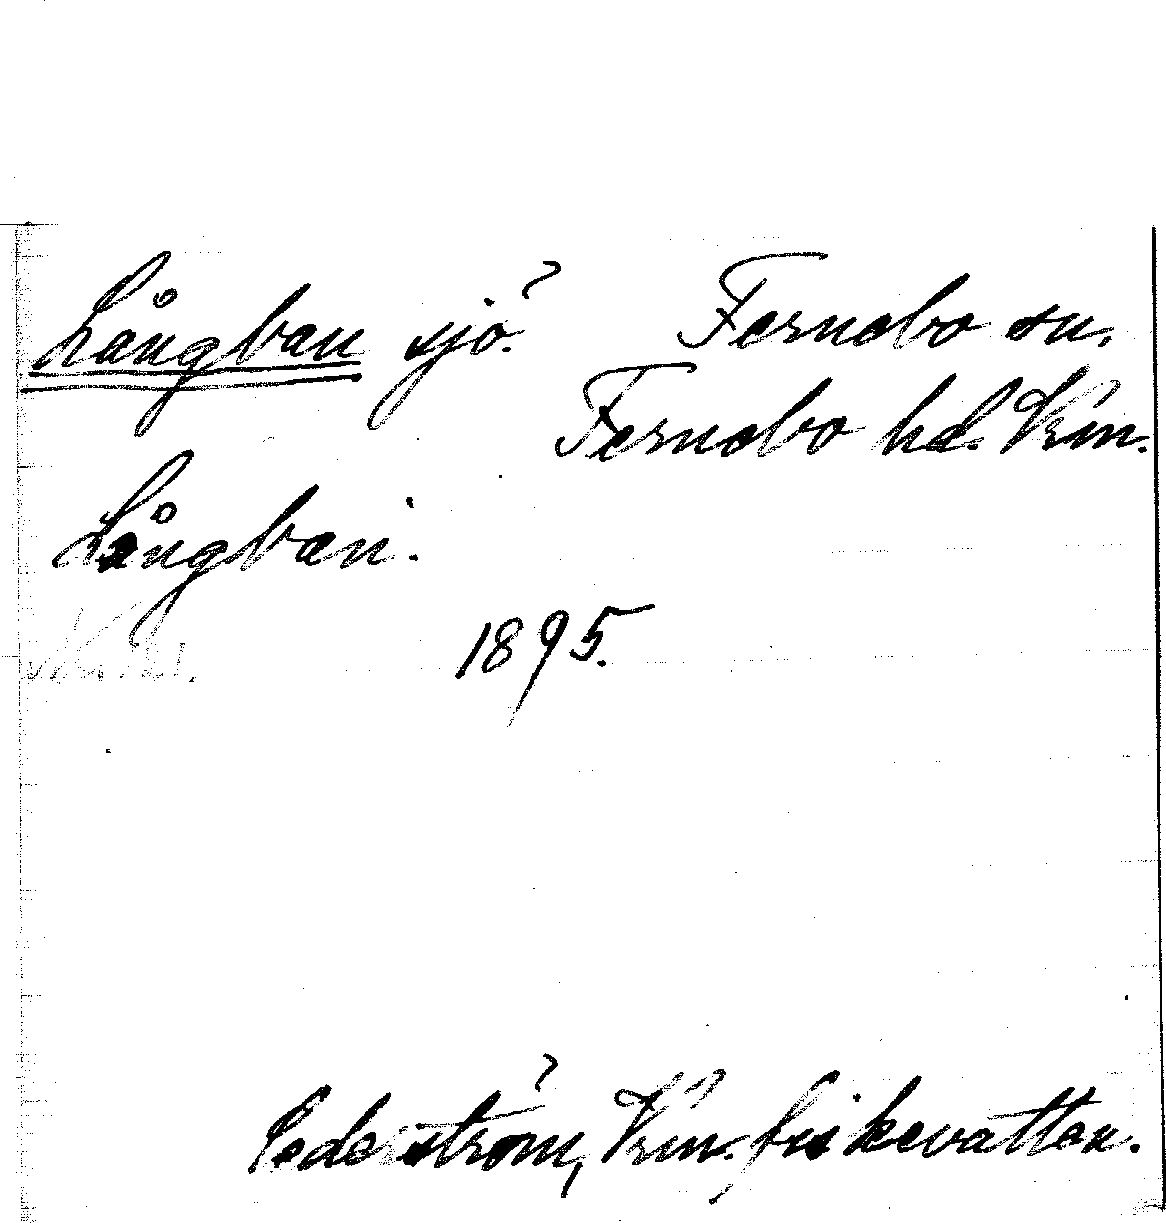 Långban sjö. Fernebo sn.
Fernebo hd. Vrm.
Långban.
1895.
Cederström, Vrm. fiskevatten.